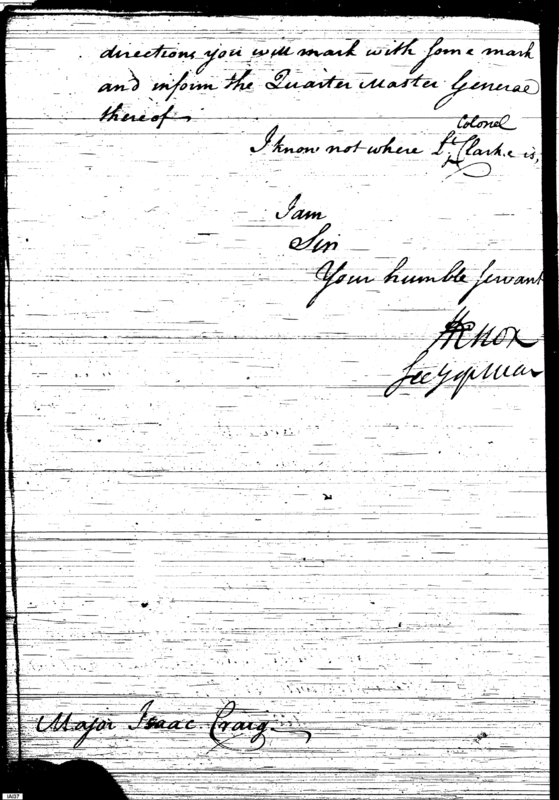 directions you will mark with some mark
and inform the Quarter Master General
thereof
Colonel
I know not where Lt Clarke is,
I am
Sir
Your humble servant
HKnox
Secy of War
Major Isaac Craig